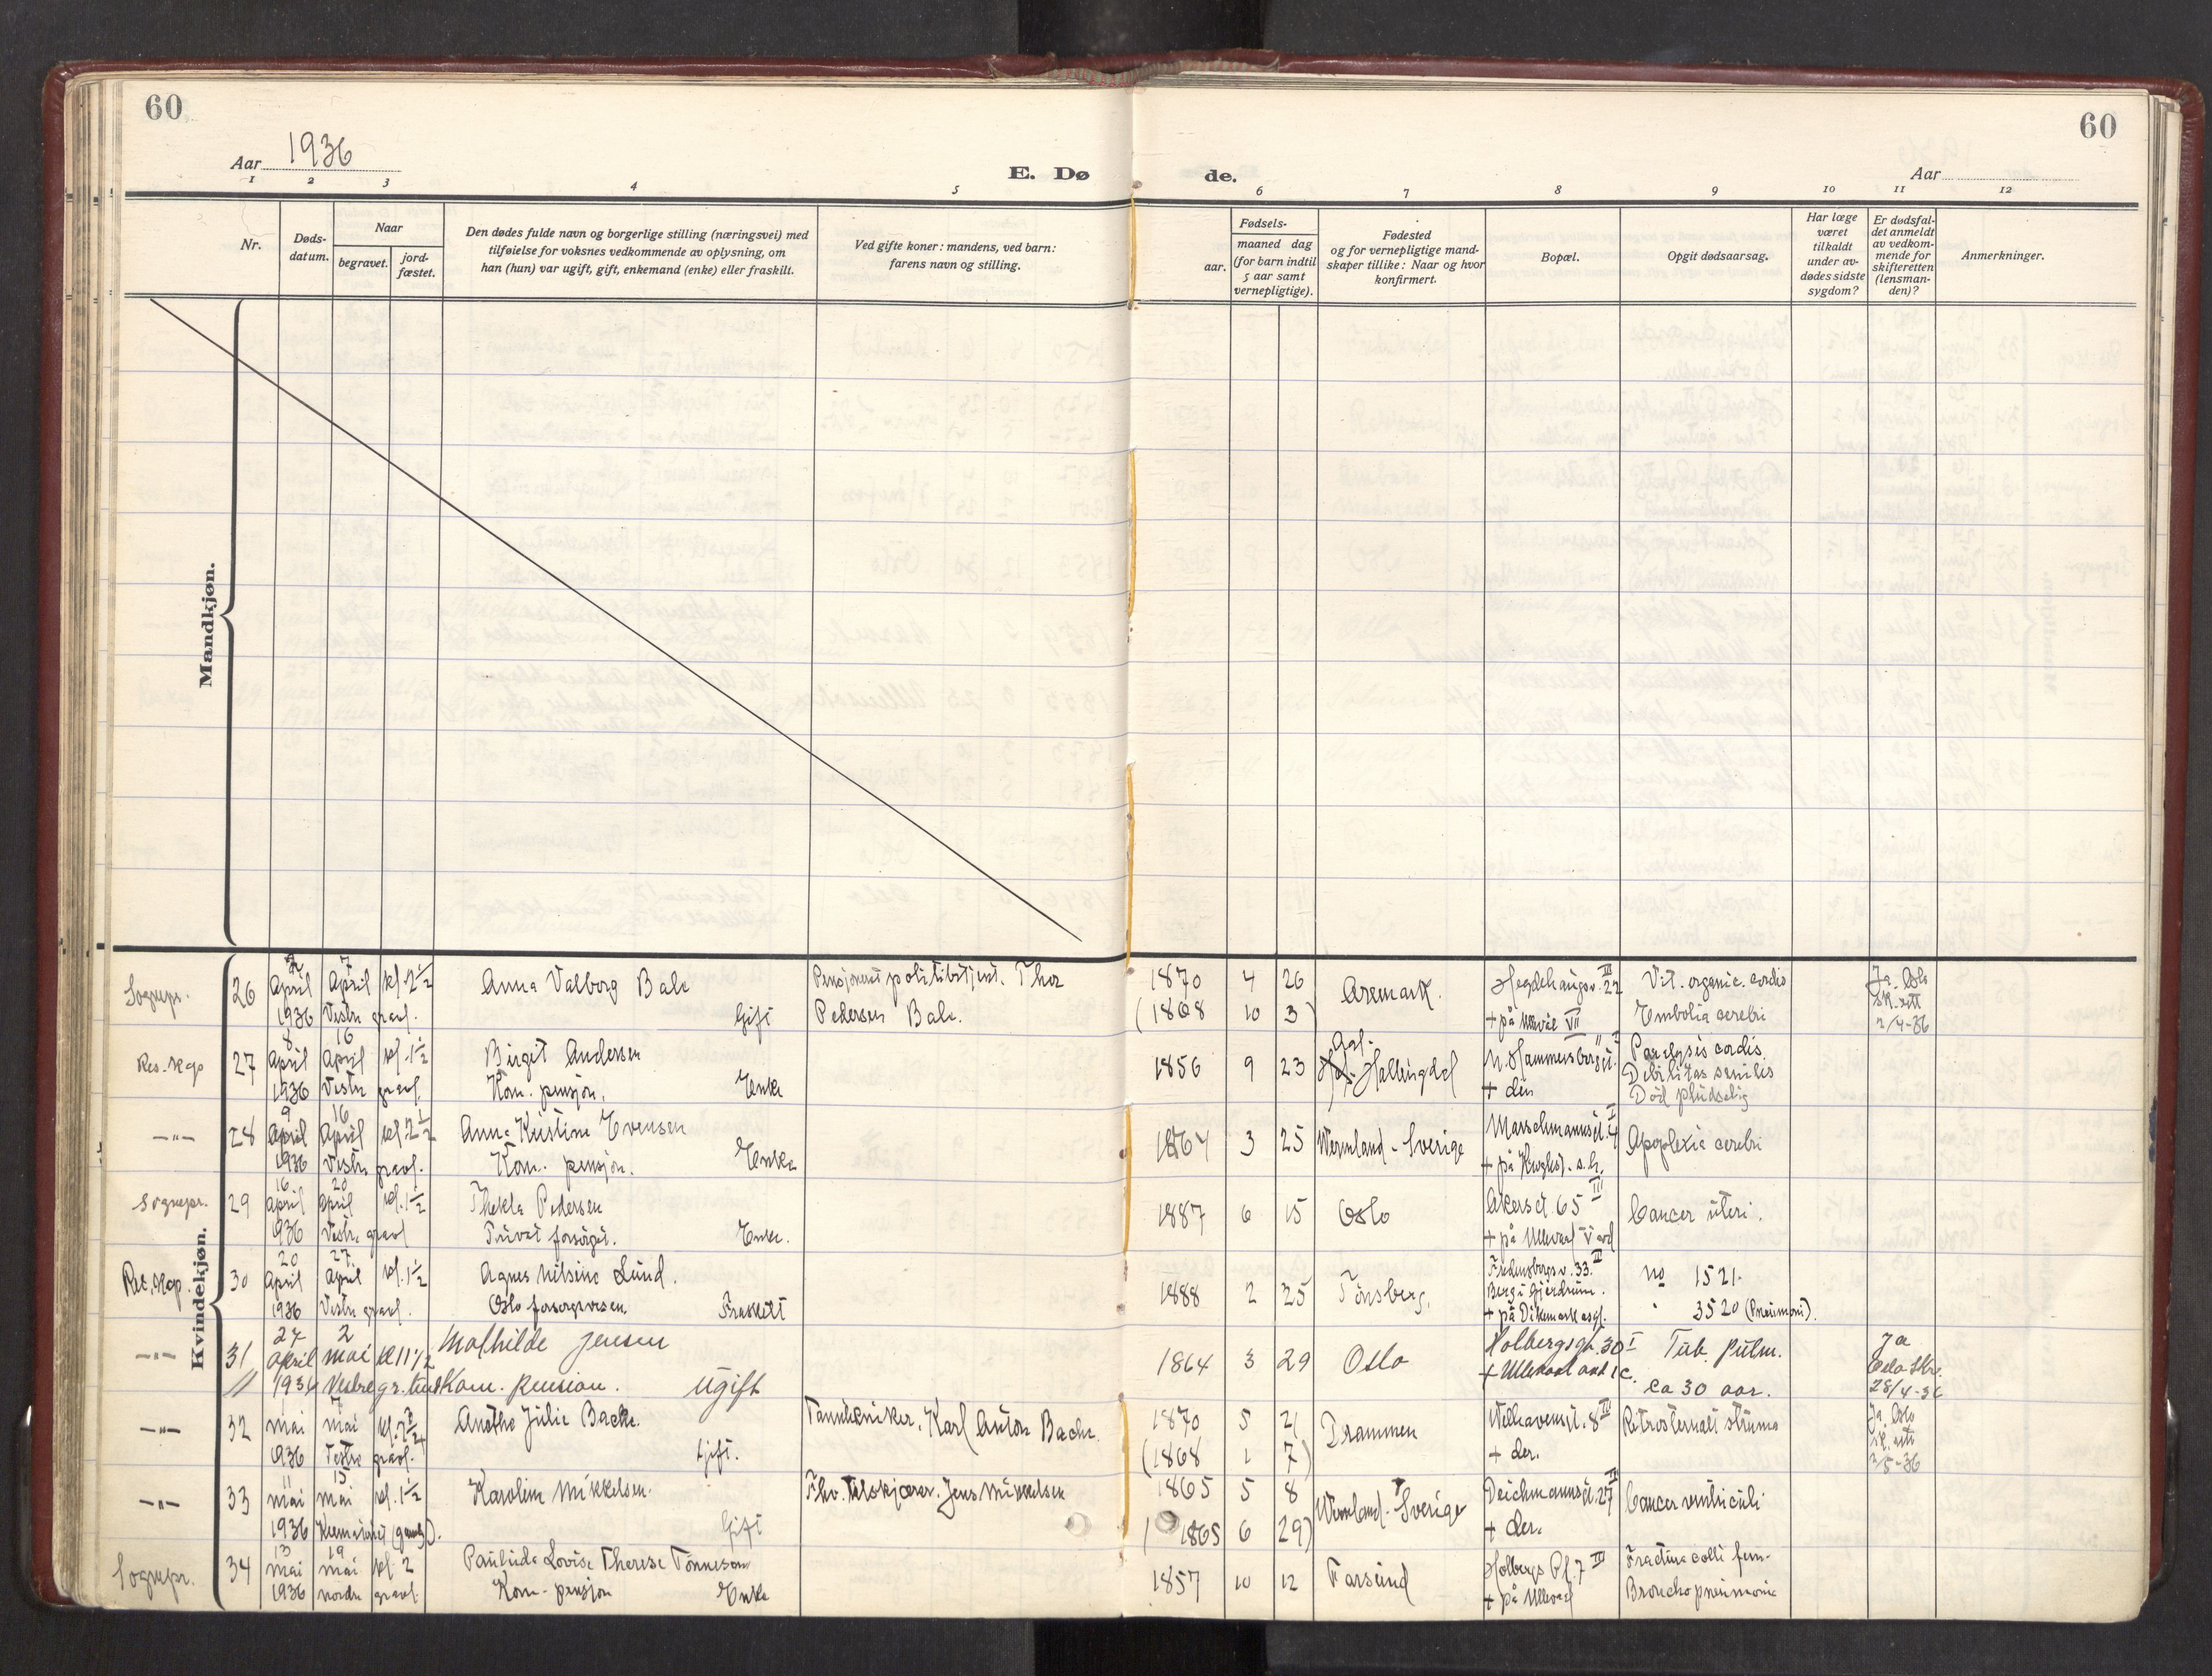 60
60
Aar 1936
E. Dø
de.
Aar
1 2 3 4 5 6 7 8 9 10 11 12
Nr.
Døds-
datum.
Naar
begravet.
jord-
fæstet.
Den dødes fulde navn og borgerlige stilling (næringsvei) med
tilføielse for voksnes vedkommende av oplysning, om
han (hun) var ugift, gift, enkemand (enke) eller fraskilt.
Ved gifte koner: mandens, ved barn:
farens navn og stilling.
Fødsels-
aar.
maaned dag
(for barn indtil
5 aar samt
vernepligtige).
Fødested
og for vernepligtige mand-
skaper tillike: Naar og hvor
konfirmert.
Bopæl.
Opgit dødsaarsag.
Har læge
været
tilkaldt
under av-
dødes sidste
sygdom?
Er dødsfal-
det anmeldt
av vedkom-
mende for
skifteretten
(lensman-
den)?
Anmerkninger.
Mandkjøn.
Kvindekjøn.
7 7
Sognepr. 26 April April kl. 2½ Anna Valborg Bale Pensjonert politibetjent. Thor 1870 4 26 Aremark. Hegdehaugsv. 22 III Vit. organic. cordis Ja. Oslo
sk.rett
1936 Vestre gravl. Gift Pedersen Bale. (1868 10 3) + på Ullevål VII Embolia cerebri 2/4-36
8 16 Aal.
Res. Kap 27 April April kl. 1½ Birgit Andersen 1856 9 23 Hallingdal N. Hammersborggt. Paralysis cordis.
1936 Vestre gravl. Kom. pensjon. Enke + der Debilitas senilis
Död plüdselig
9 16
—"— 28 April April kl. 2½ Anna Kristine Evensen 1864 3 25 Wermland - Sverige Marschmannsgt. 4 I Apoplexia cerebri
1936 Vestre gravl. Kom. pensjon. Enke + på Krohgst. s.h.
16 20
Sognepr. 29 April April kl. 1½ Thekla Pedersen 1887 6 15 Oslo Akersgt. 65 III Cancer üteri.
1936 Vestre gravl Privat forsörget. Enke. + på Ullevaal V avd
20 27
Res. Kap. 30 April April kl. 1½ Agnes Nilsine Lünd. 1888 2 25 Tönsberg. Fredensborgv. 33. II no 1521.
Berg i Gjerdrum.
1936 Vestre gravl. Oslo forsorgsvesen Fraskilt + på Dikemark asyl. " 3520 (Pneümoni).
24 2
—"— 31 April mai kl 11½ Mathilde Jensen 1864 3 29 Oslo Holbergsgt. 30 I Tüb. pülm. Ja
1936 Vestre gr. lund Kom. pension. Ugift + Ullevaal avd 1 C. ca 30 aar. Oslo Skr.
28/4-36
1 7
—"— 32 mai mai kl. 7¾ Anethe Jülie Bache. Tanntekniker. Karl Anton Bache. 1870 5 21 Drammen Welhavensgt. 8 III Retrosternall strüma Ja. Oslo
sk. rett
1936 Vestre gravl. Gift. (1868 1 7) + der. 2/5-36
11 15
—"— 33 mai mai kl. 1½ Karoline Mikkelsen. Fhv. Tilskjærer. Jens Mikkelsen 1865 5 8 Wermland. Sverige Deichmannsgt. 27 II Cancer ventriculi
1936 Krematoriet (gamle). Gift (1865 6 29) + der.
13 19
Sognepr. 34 mai mai kl. 2 Paulida Lovise Therese Tönnesen 1857 10 12 Farsünd Holbergs Pl. 7 III Fractüra colli fem-
1936 nordre gravl. Kom. pensjon Enke + på Ullevaal Bronchopneümonie